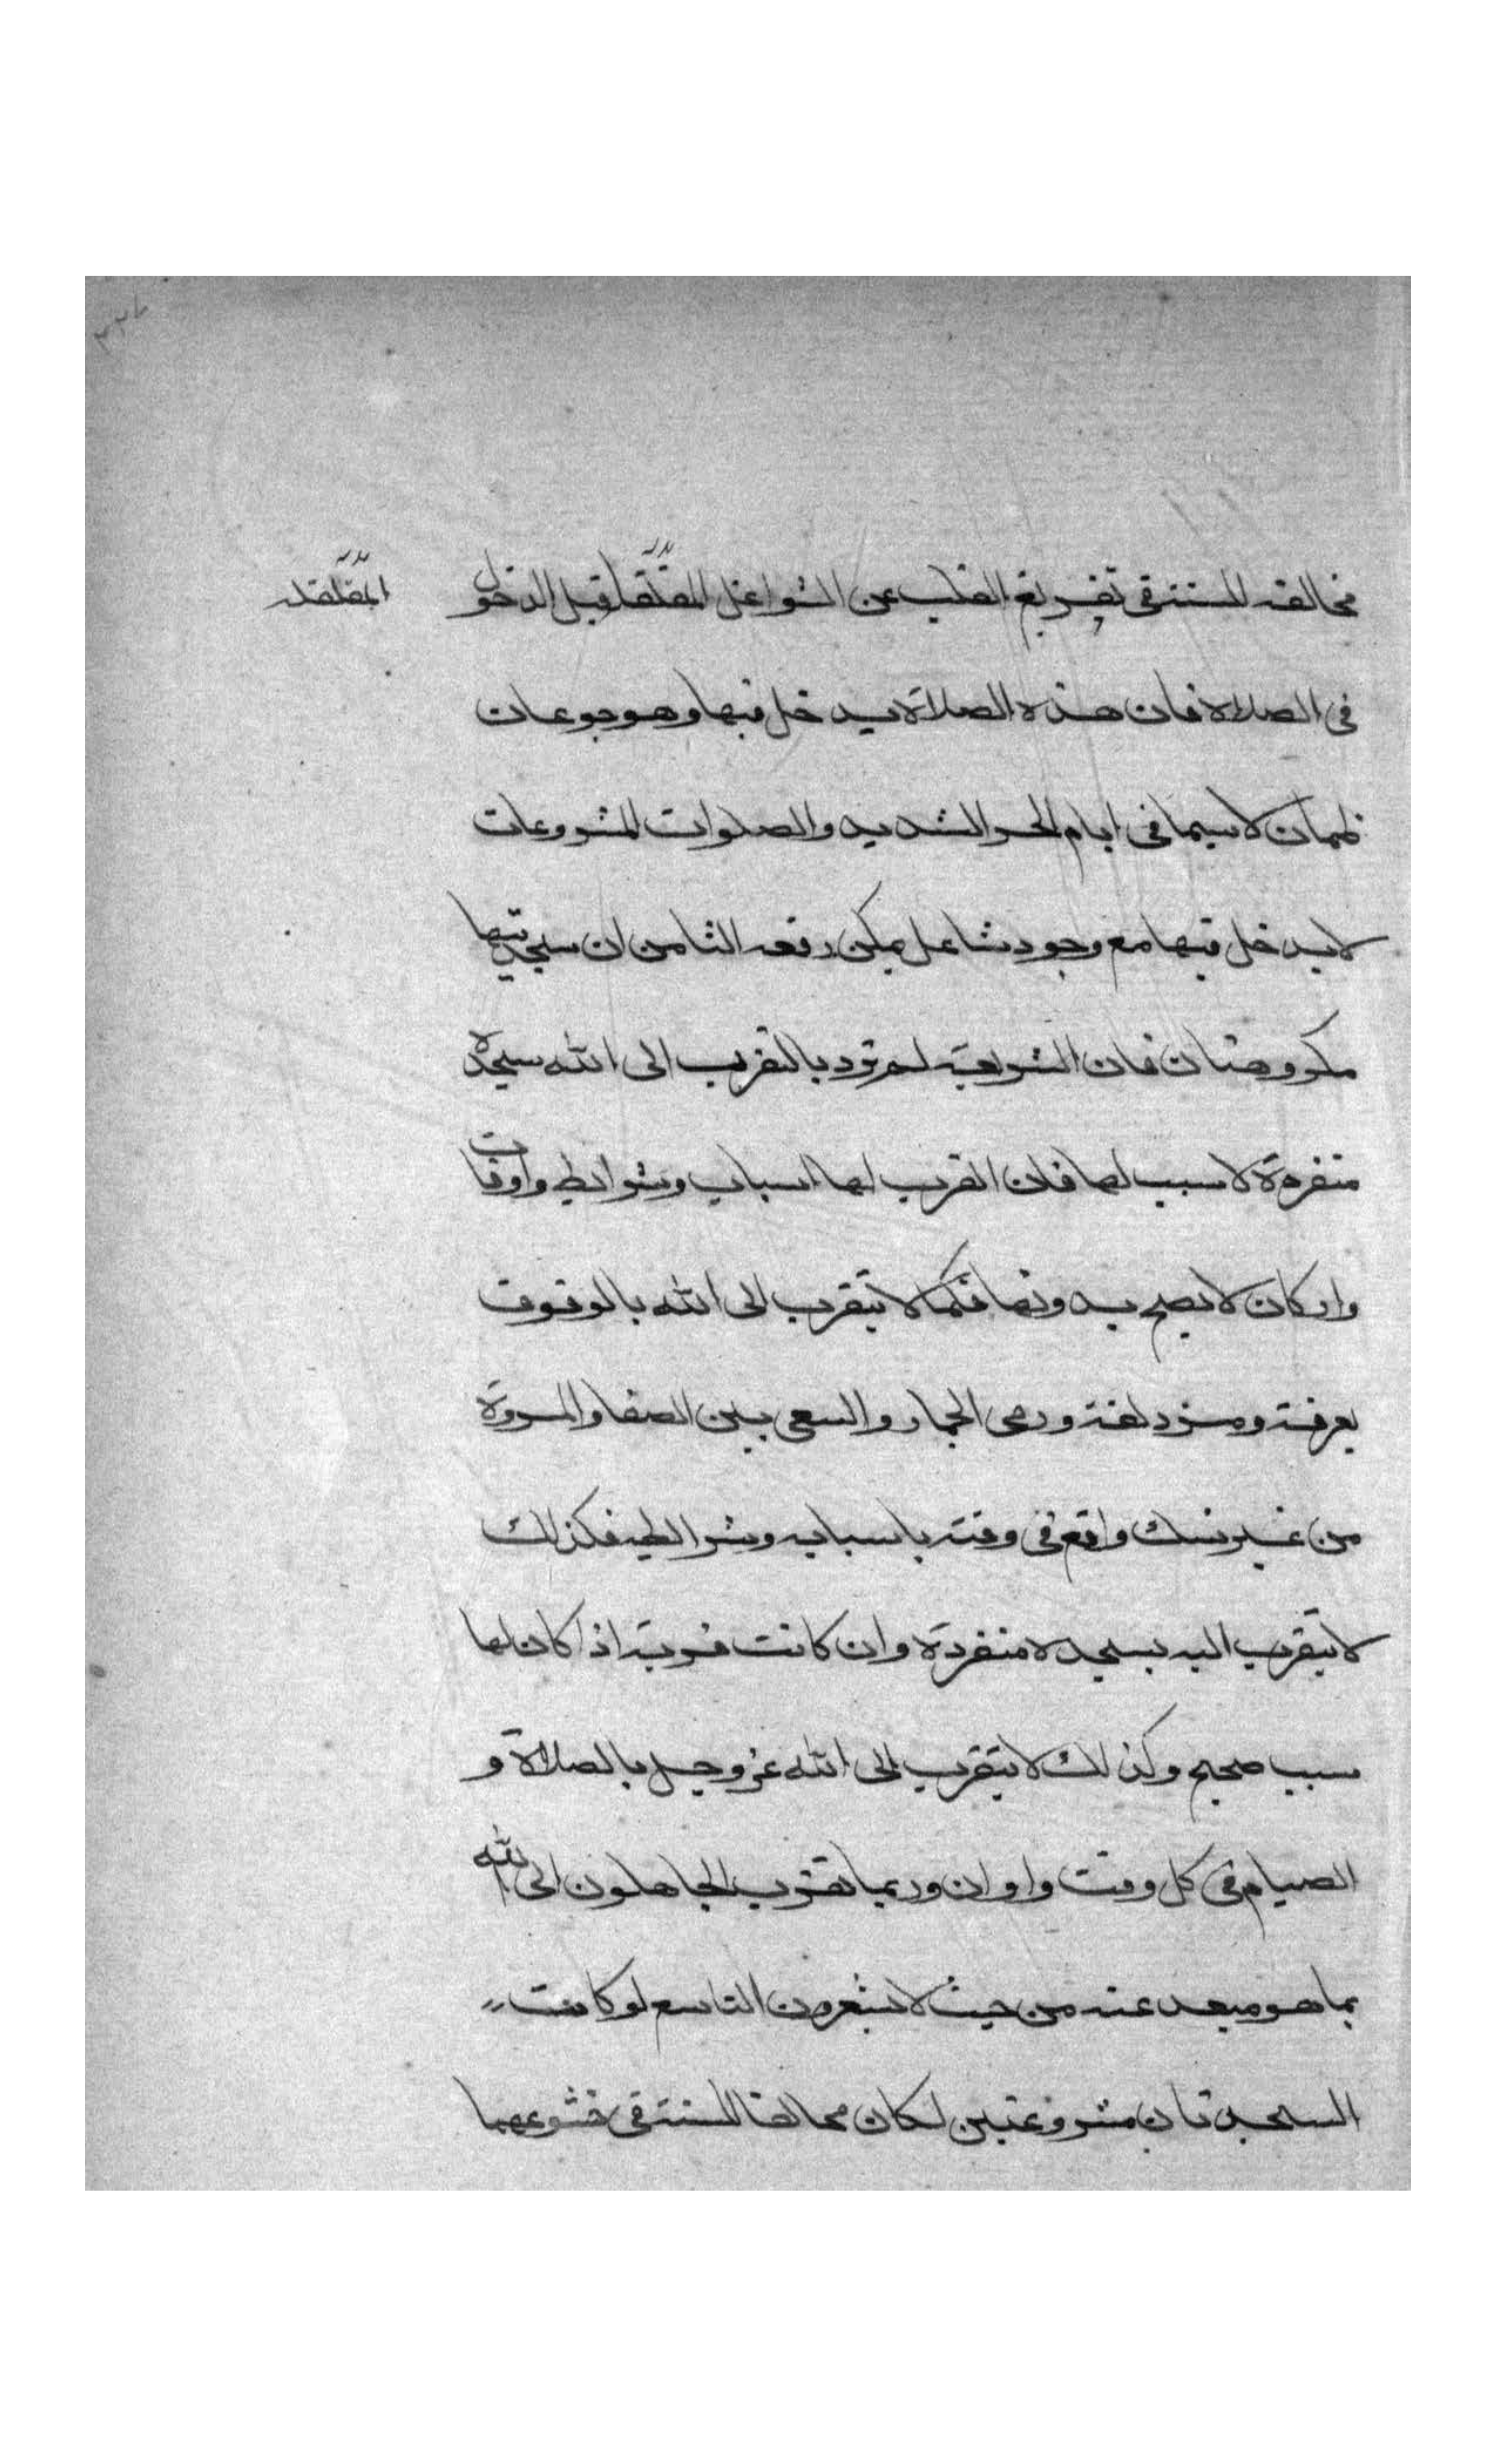 مخالفه للسنة في تفريغ القلب عن الشواغل المقلقله قبل الدخول
المقلقله
في الصلاة فان هذه الصلاة يدخل فيها وهو جوعان
ظمان لاسيما في ايام الحر الشديد والصلوات المشروعات
لا يدخل فيها مع وجود شاغل يمكن رفعه الثامن ان سجدتيها
مكروهتان فان الشريعة لم ترد بالتقرب الى الله سجدة
منفردة لا سبب لها فان القرب لها اسباب وشرايط واوقات
واركان لا يصح بدونها فكما لا يتقرب الى الله بالوقوف
بعرفة ومزدلفة ورمى الجمار والسعى بين الصفا والمروة
من غير نسك واقع في وقته باسبابه وشرايطه فكذلك
لا يتقرب اليه بسجدة منفردة وان كانت قربة اذا كان لها
سبب صحيح وكذلك لا يتقرب الى الله عز وجل بالصلاة و
الصيام في كل وقت واوان وربما تقرب الجاهلون الى الله
بما هو مبعد عنه من حيث لا يشعرون التاسع لو كانت
السجدتان مشروعتين لكان مخالفا للسنة في خشوعهما